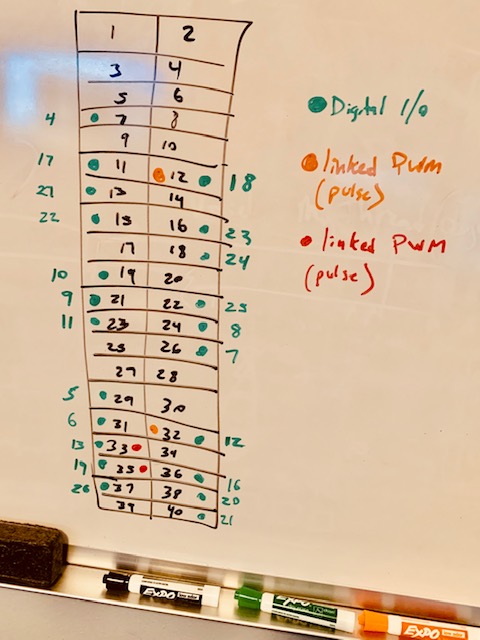 1 2
3 4
5 6
4 7 8
9 10
17 11 12 18
27 13 14
22 15 16 23
17 18 24
10 19 20
9 21 22 25
11 23 24 8
25 26 7
27 28
5 29 30
6 31 32 12
13 33 34
19 35 36 16
26 37 38 20
39 40 21
Digital I/O
linked PWM
(pulse)
linked PWM
(pulse)
EXPO
EXPO
EXPO